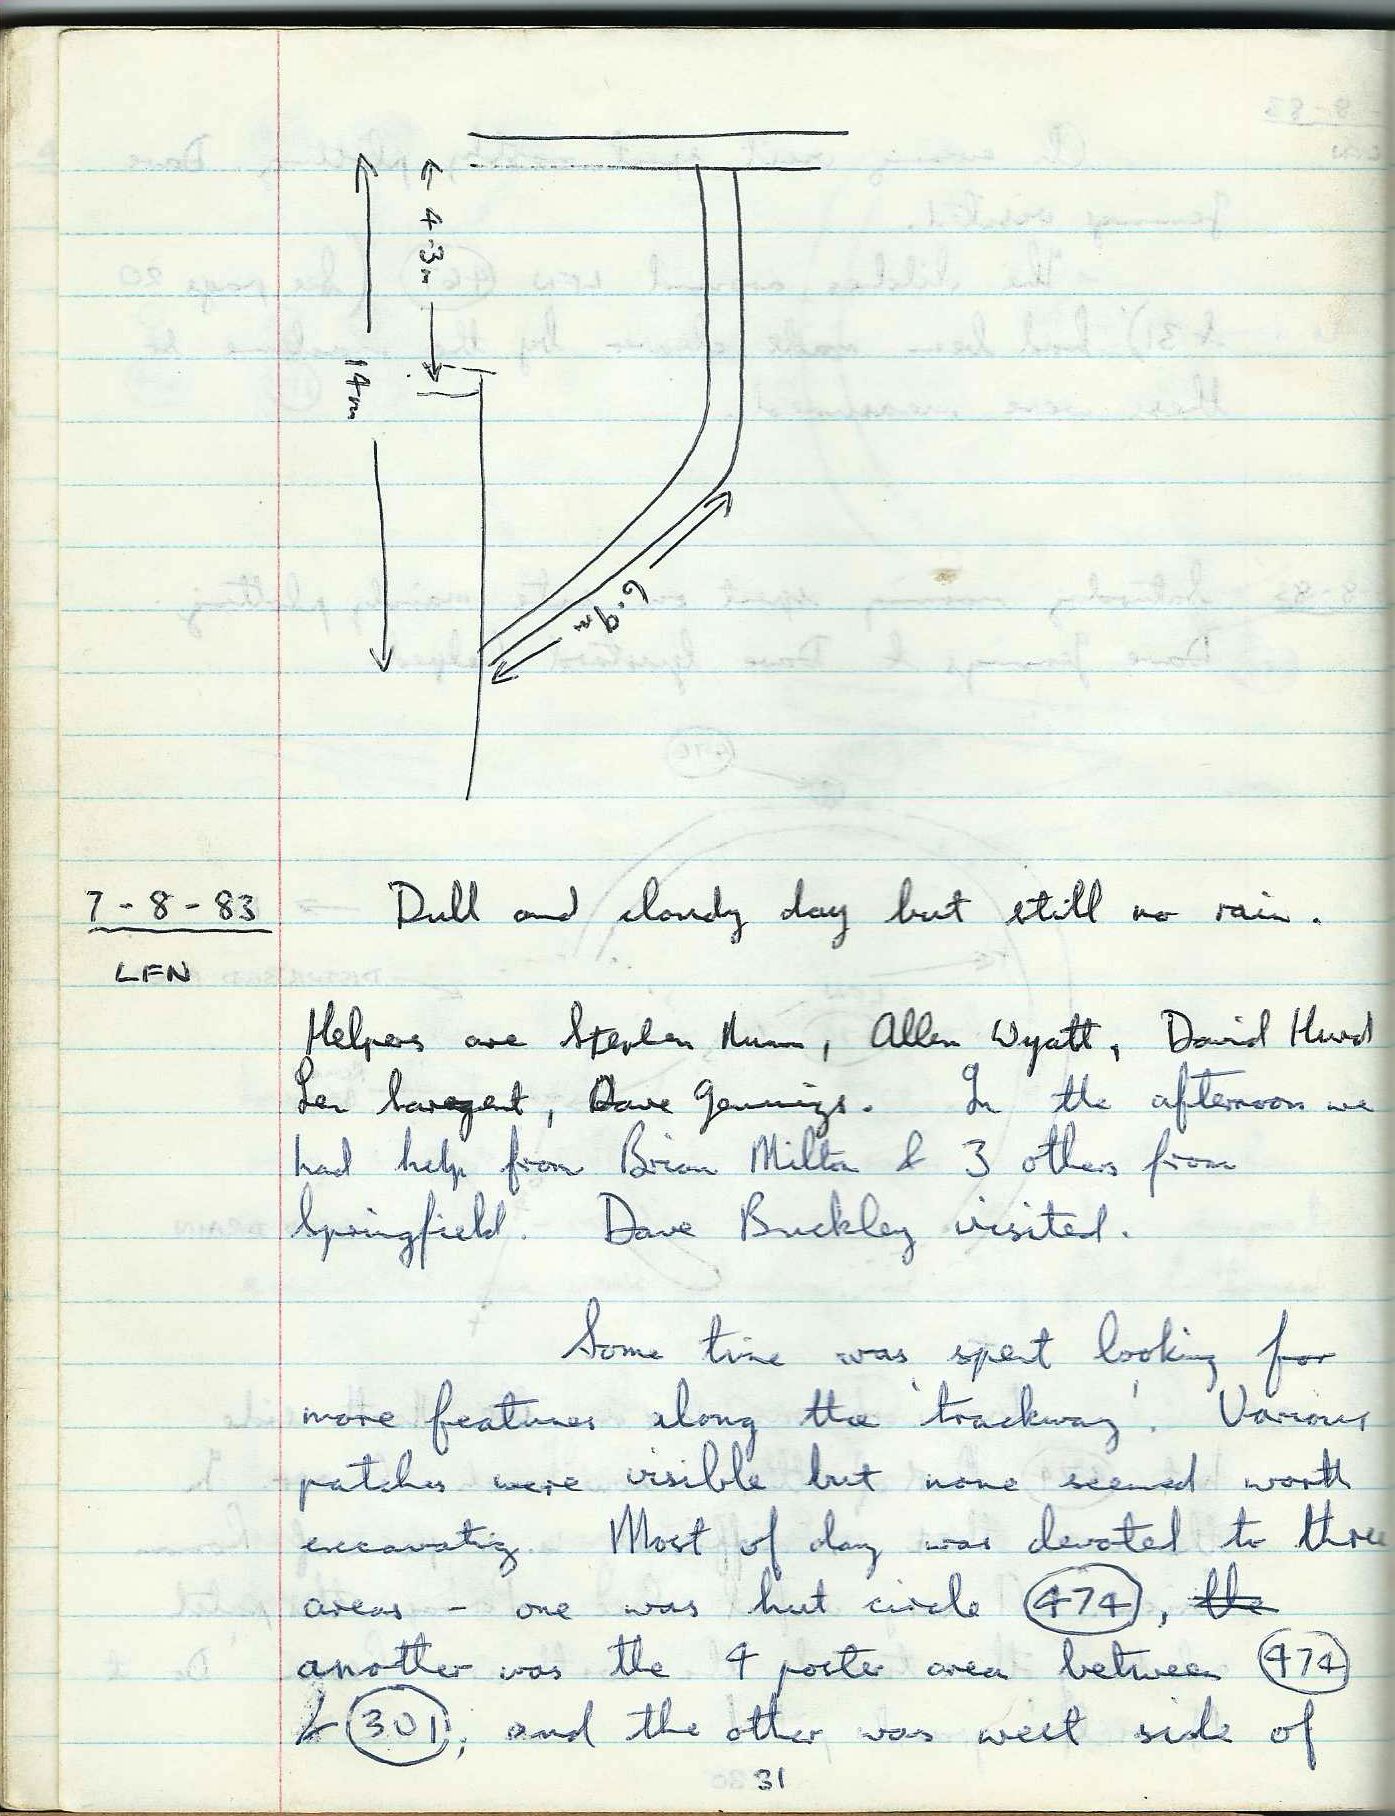 4.3m
14m
6.9m
7-8-83
Dull and cloudy day but still no rain.
LFN
Helpers are Stephen Nunn, Allen Wyatt, David Hurd
Len Saregent, Dave Jennings. In the afternoon we
had help from Brian Milton & 3 others from
Springfield. Dave Buckley visited.
Some time was spent looking for
more features along the 'trackway'. Various
patches were visible but none seemed worth
excavating. Most of day was devoted to three
areas - one was hut circle 474, the
another was the 4 poster area between 474
& 301; and the other was west side of
31